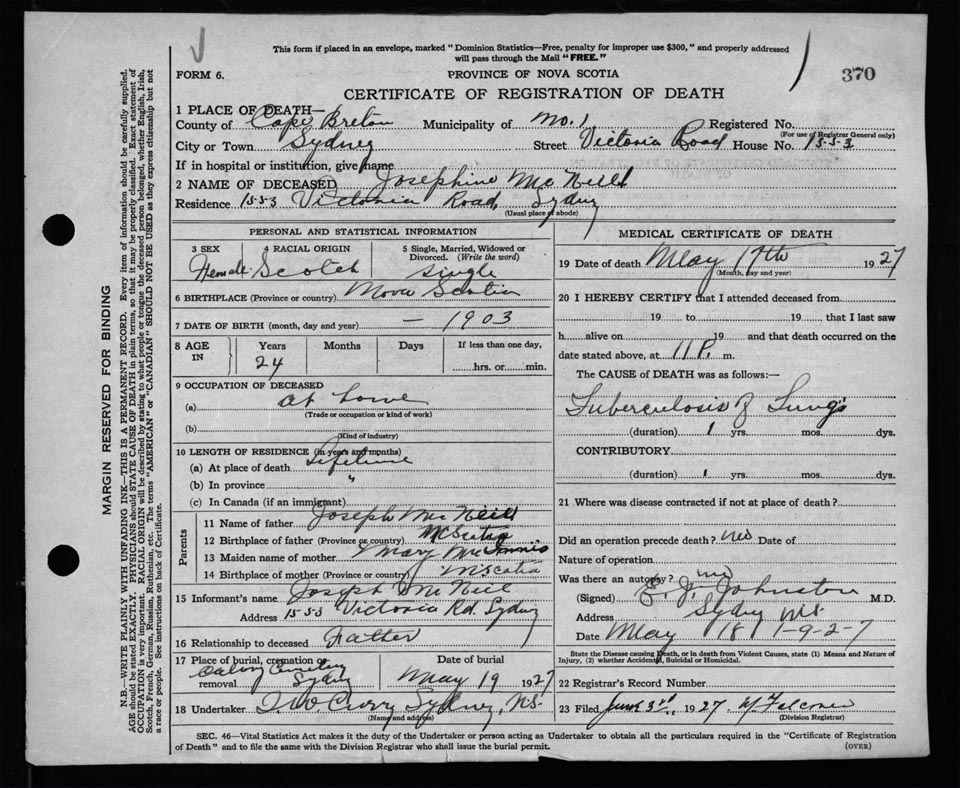 This form if placed in an envelope, marked "Dominion Statistics—Free, penalty for improper use $300," and properly addressed
will pass through the Mail "FREE."
FORM 6.
PROVINCE OF NOVA SCOTIA
370
CERTIFICATE OF REGISTRATION OF DEATH
1 PLACE OF DEATH—
County of Cape Breton Municipality of No. 1 Registered No.
(For use of Registrar General only)
City or Town Sydney Street Victoria Road House No. 1553
If in hospital or institution, give name
2 NAME OF DECEASED Josephine McNeill
Residence 1553 Victoria Road, Sydney
(Usual place of abode)
PERSONAL AND STATISTICAL INFORMATION
3 SEX Female
4 RACIAL ORIGIN Scotch
5 Single, Married, Widowed or Divorced. (Write the word) Single
6 BIRTHPLACE (Province or country) Nova Scotia
7 DATE OF BIRTH (month, day and year) — 1903
8 AGE IN Years 24 Months Days If less than one day, hrs. or min.
9 OCCUPATION OF DECEASED
(a) At home
(Trade or occupation or kind of work)
(b)
(Kind of industry)
10 LENGTH OF RESIDENCE (in years and months)
(a) At place of death Lifetime
(b) In province "
(c) In Canada (if an immigrant)
Parents
11 Name of father Joseph McNeill
12 Birthplace of father (Province or country) N Scotia
13 Maiden name of mother Mary McInnis
14 Birthplace of mother (Province or country) N Scotia
15 Informant's name Joseph McNeil
Address 1553 Victoria Rd. Sydney
16 Relationship to deceased Father
17 Place of burial, cremation or removal Calvary Cemetery Sydney
Date of burial May 19 1927
18 Undertaker Curry Sydney, N.S.
(Name and address)
MEDICAL CERTIFICATE OF DEATH
19 Date of death May 17th 1927
(Month, day and year)
20 I HEREBY CERTIFY that I attended deceased from
19 to 19 that I last saw
h alive on 19 and that death occurred on the
date stated above, at 11 P. m.
The CAUSE of DEATH was as follows:—
Tuberculosis of Lungs
(duration) 1 yrs. mos. dys.
CONTRIBUTORY
(duration) 1 yrs. mos. dys.
21 Where was disease contracted if not at place of death?
Did an operation precede death? no Date of
Nature of operation
Was there an autopsy? no
(Signed) E. J. Johnston M.D.
Address Sydney N.S.
Date May 18 1-9-2-7
State the Disease causing Death, or in death from Violent Causes, state (1) Means and Nature of
Injury, (2) whether Accidental, Suicidal or Homicidal.
22 Registrar's Record Number
23 Filed June 3rd 1927 Falconer
(Division Registrar)
SEC. 46—Vital Statistics Act makes it the duty of the Undertaker or person acting as Undertaker to obtain all the particulars required in the "Certificate of Registration
of Death" and to file the same with the Division Registrar who shall issue the burial permit.
(OVER)
MARGIN RESERVED FOR BINDING
N.B.—WRITE PLAINLY WITH UNFADING INK—THIS IS A PERMANENT RECORD. Every item of information should be carefully supplied.
AGE should be stated EXACTLY. PHYSICIANS should STATE CAUSE OF DEATH in plain terms, so that it may be properly classified. Exact statement of
OCCUPATION is very important. RACIAL ORIGIN will be described by stating to what people or tongue the deceased person belonged, whether English, Irish,
Scotch, French, German, Russian, Ruthenian, etc. The terms "AMERICAN" or "CANADIAN" SHOULD NOT BE USED as they express citizenship but not
a race or people. See instructions on back of Certificate.